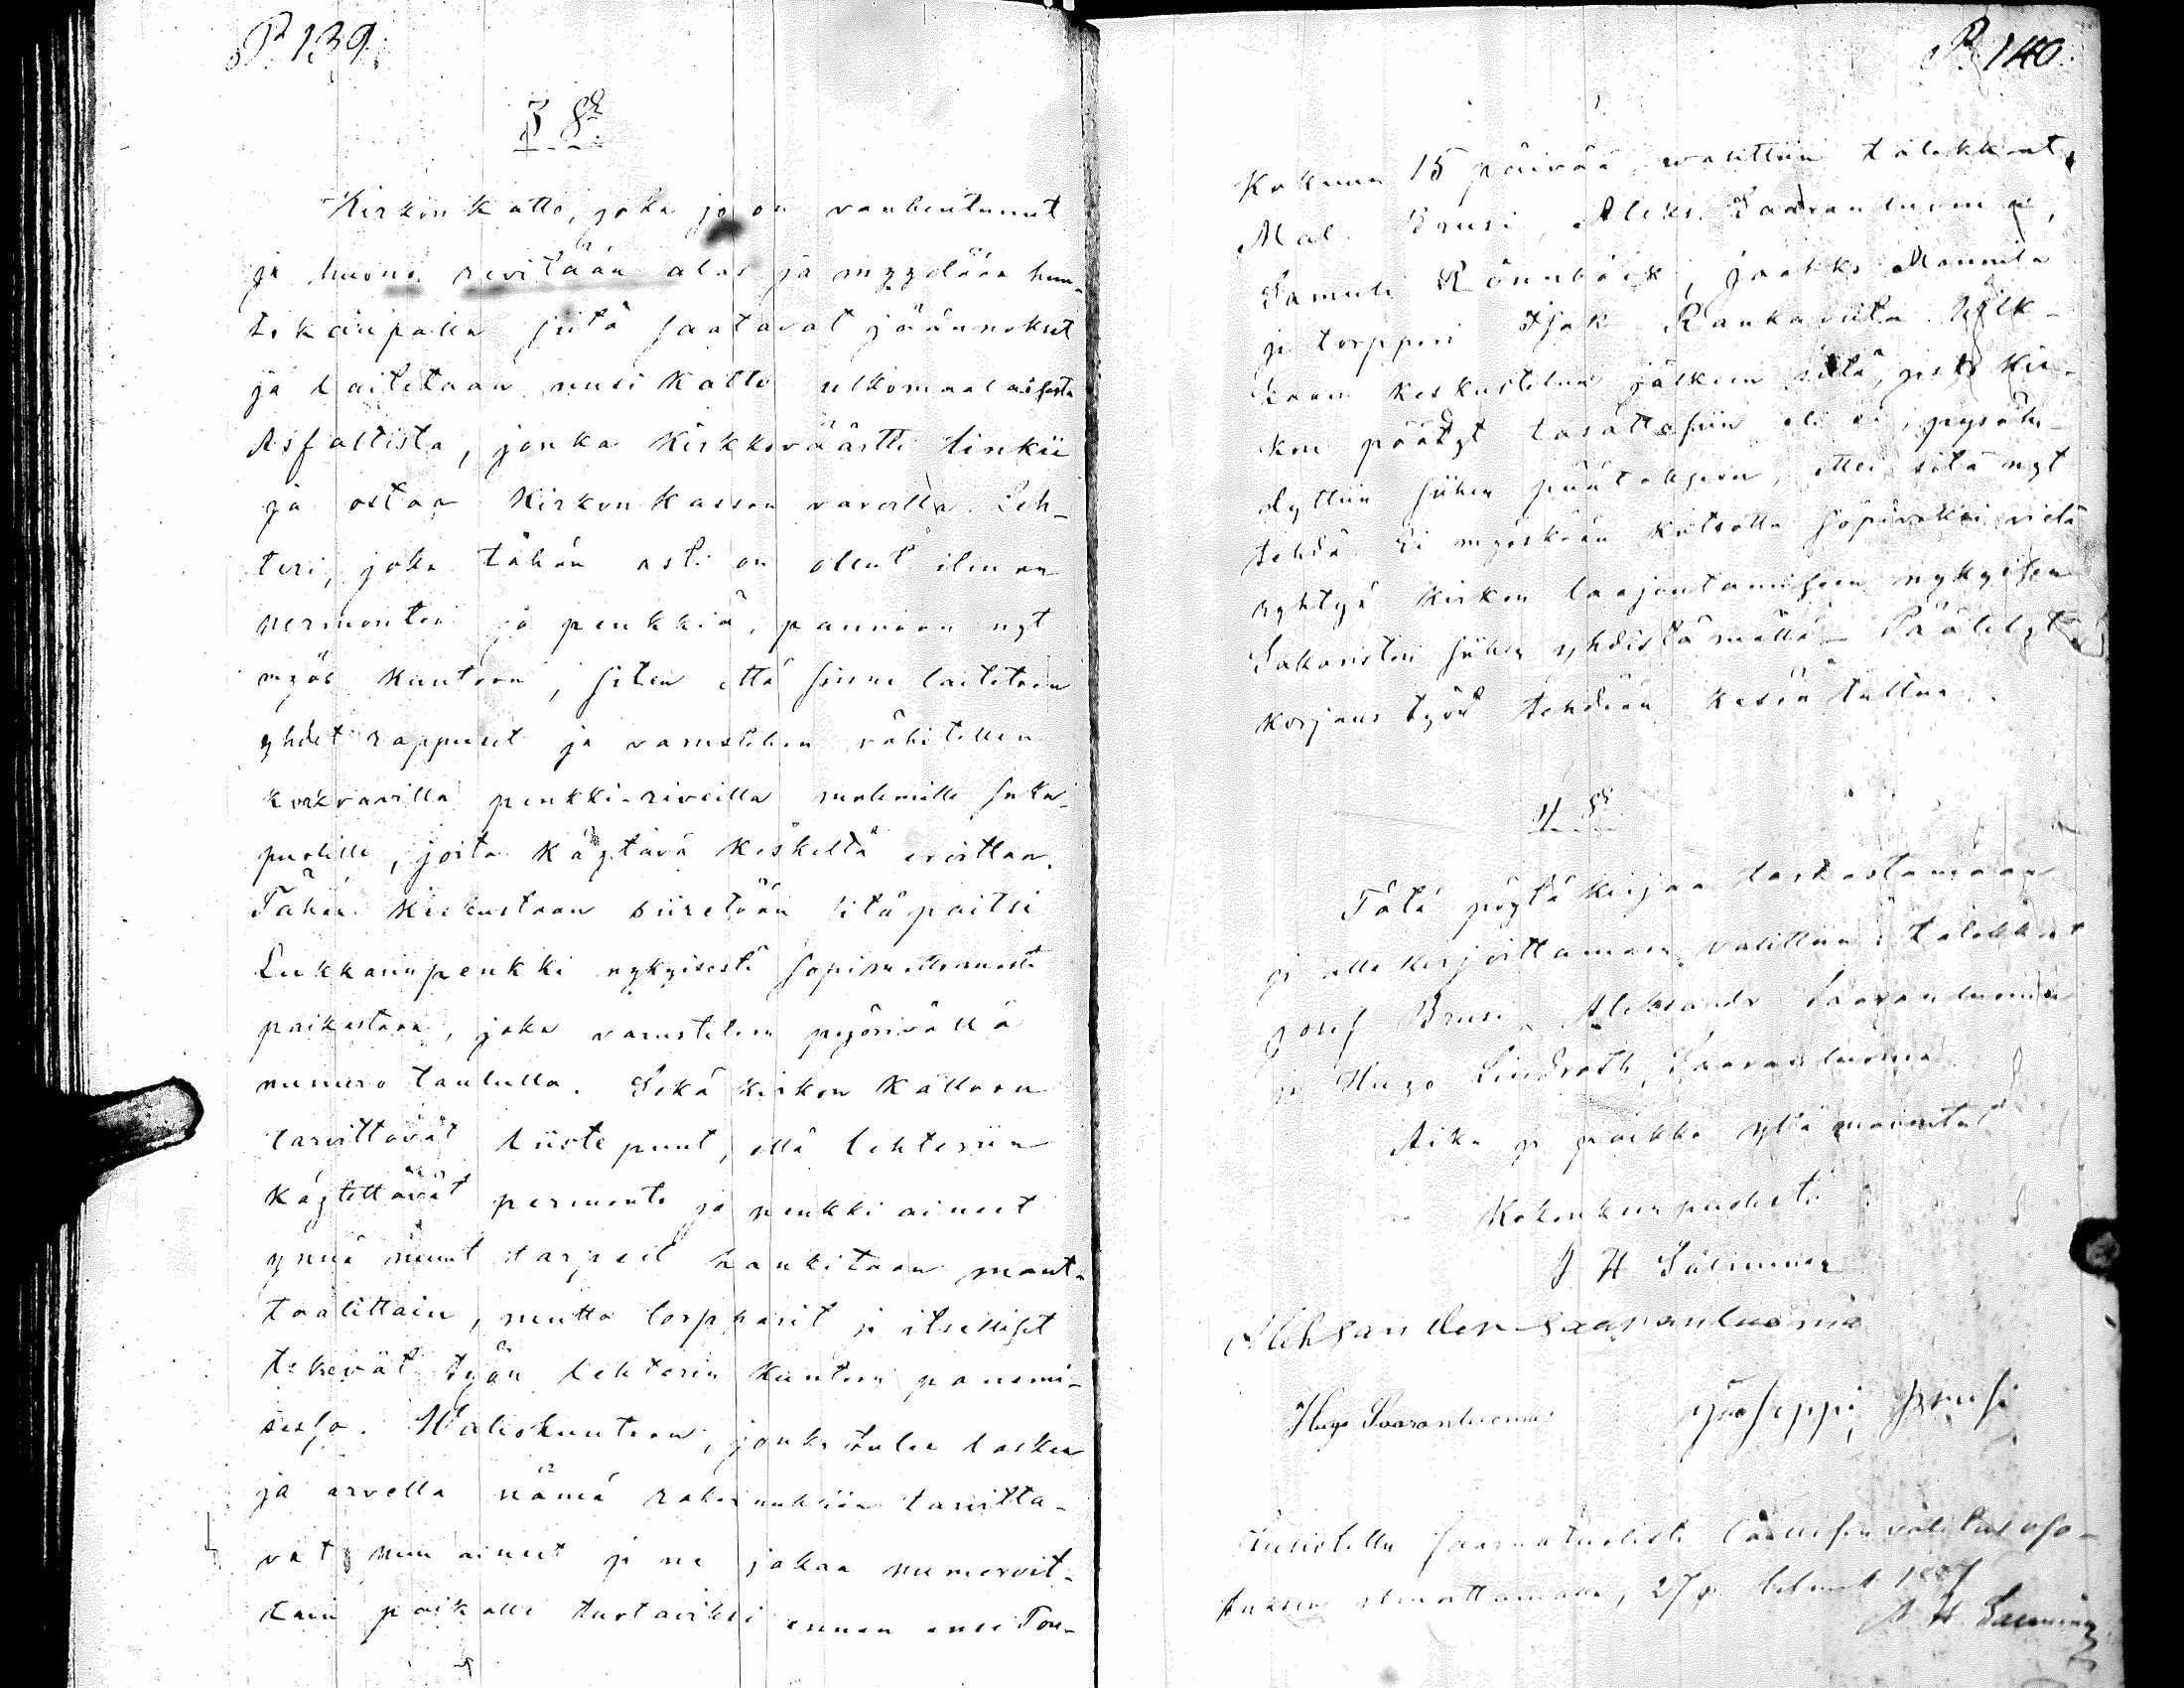 P. 139.
3 §
Kirkon katto, joka jo on vanhentunut
ja huono, revitään alas ja myydään huu-
tokaupalla siitä saatavat jäännökset
ja laitetaan uusi katto ulkomaalaisesta
Asfaltista, jonka kirkkoväärtti tinkii
ja ostaa kirkon kassan varoilla. Leh-
teri, joka tähän asti on ollut ilman
permantoa ja penkkiä, pannaan nyt
myös kuntoon, siten että sinne laitetaan
yhdet rappuset ja varustetaan vähitellen
penkki-riveillä molemille suku-
puolille, joita käytävä keskeltä eroittaa.
Tähän keskustaan siiretään sitä paitsi
Lukkarinpenkki nykyisestä sopimattomasta
paikastaan, joka varustetaan pyörivällä
numero taululla. Sekä kirkon kattoon
tarvittavat liistepuut, että lehteriin
käytettävät permanto ja penkki aineet
ynnä muut tarpeet hankitaan mant-
taalittain, mutta torpparit ja itselliset
tekevät työn lehterin kuntoon panemi-
sessa. Waliokuntaan, jonka tulee laskea
ja arvella nämä rakennuksiin tarvitta-
vat puu aineet ja ne jakaa numeroit-
tain paikalle tuotaviksi ennen ensi Tou-
P. 140.
kokuun 15 päivää, valittiin talokkaat,
Mat. Brusi, Aleks. Saaranluoma,
Samuli Rönnbäck, Jaakko Mannila
ja torppari Isak Rankasilta. Wilk-
kaan keskustelun jälkeen siitä, josko kir-
kon päädyt lasattaisiin eli ei, pysäh-
dyttiin siihen päätökseen, ettei sitä nyt
tehdä. Ei myöskään katsottu sopivaksi vielä
ryhtyä kirkon laajentamiseen nykyisen
Sakariston siihen yhdistämällä. Päätetyt
korjaus työt tehdään kesän tultua.
4 §
Tätä pöytäkirjaa tarkastamaan
ja allekirjoittamaan valittiin talokkaat
Josef Bruse, Aleksander Saaranluoma
ja Hugo Lindroth, Saaranluoma.
Aika ja paikka yllä mainitut
Kokouksen puolesta
J H Salminen
Aleksander Saaranluoma
Hugo Saaranluoma Juoseppi Brusi
saarnatuolista laillisen valitus oso-
tuksen ilmoittamalla, 27 p. helmik. 1887
J. H. Salminen